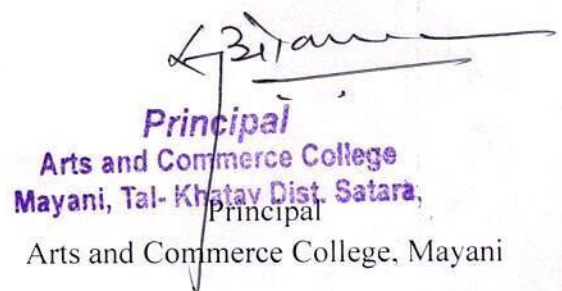 Principal
Arts and Commerce College
Mayani, Tal- Khatav Dist. Satara,
Principal
Arts and Commerce College, Mayani